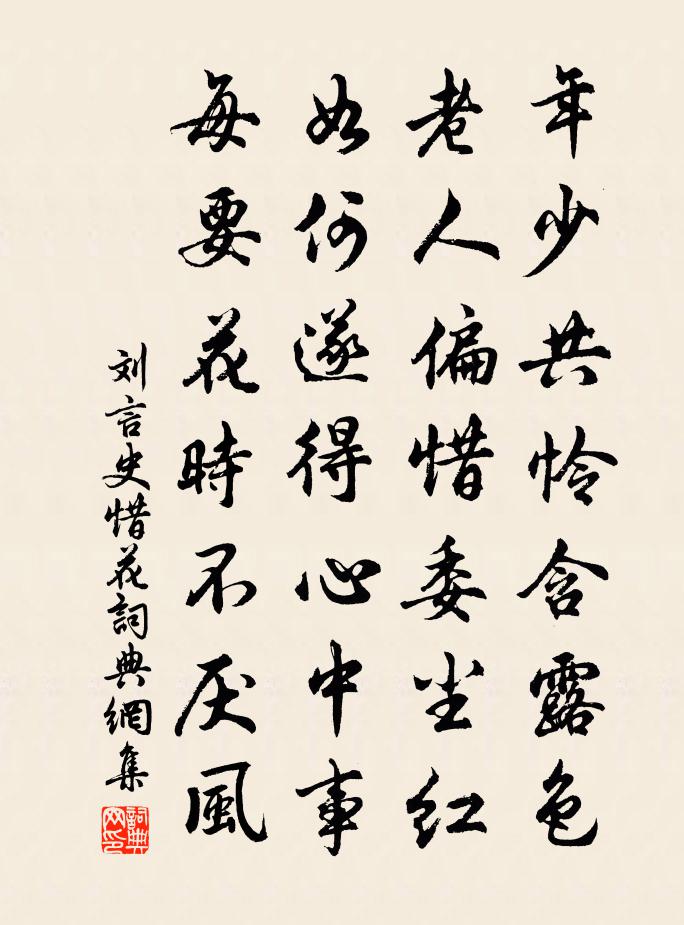 年少共怜含露色
老人偏惜委尘红
如何遂得心中事
每要花時不厌風
刘言史惜花詞典網集
詞典网印